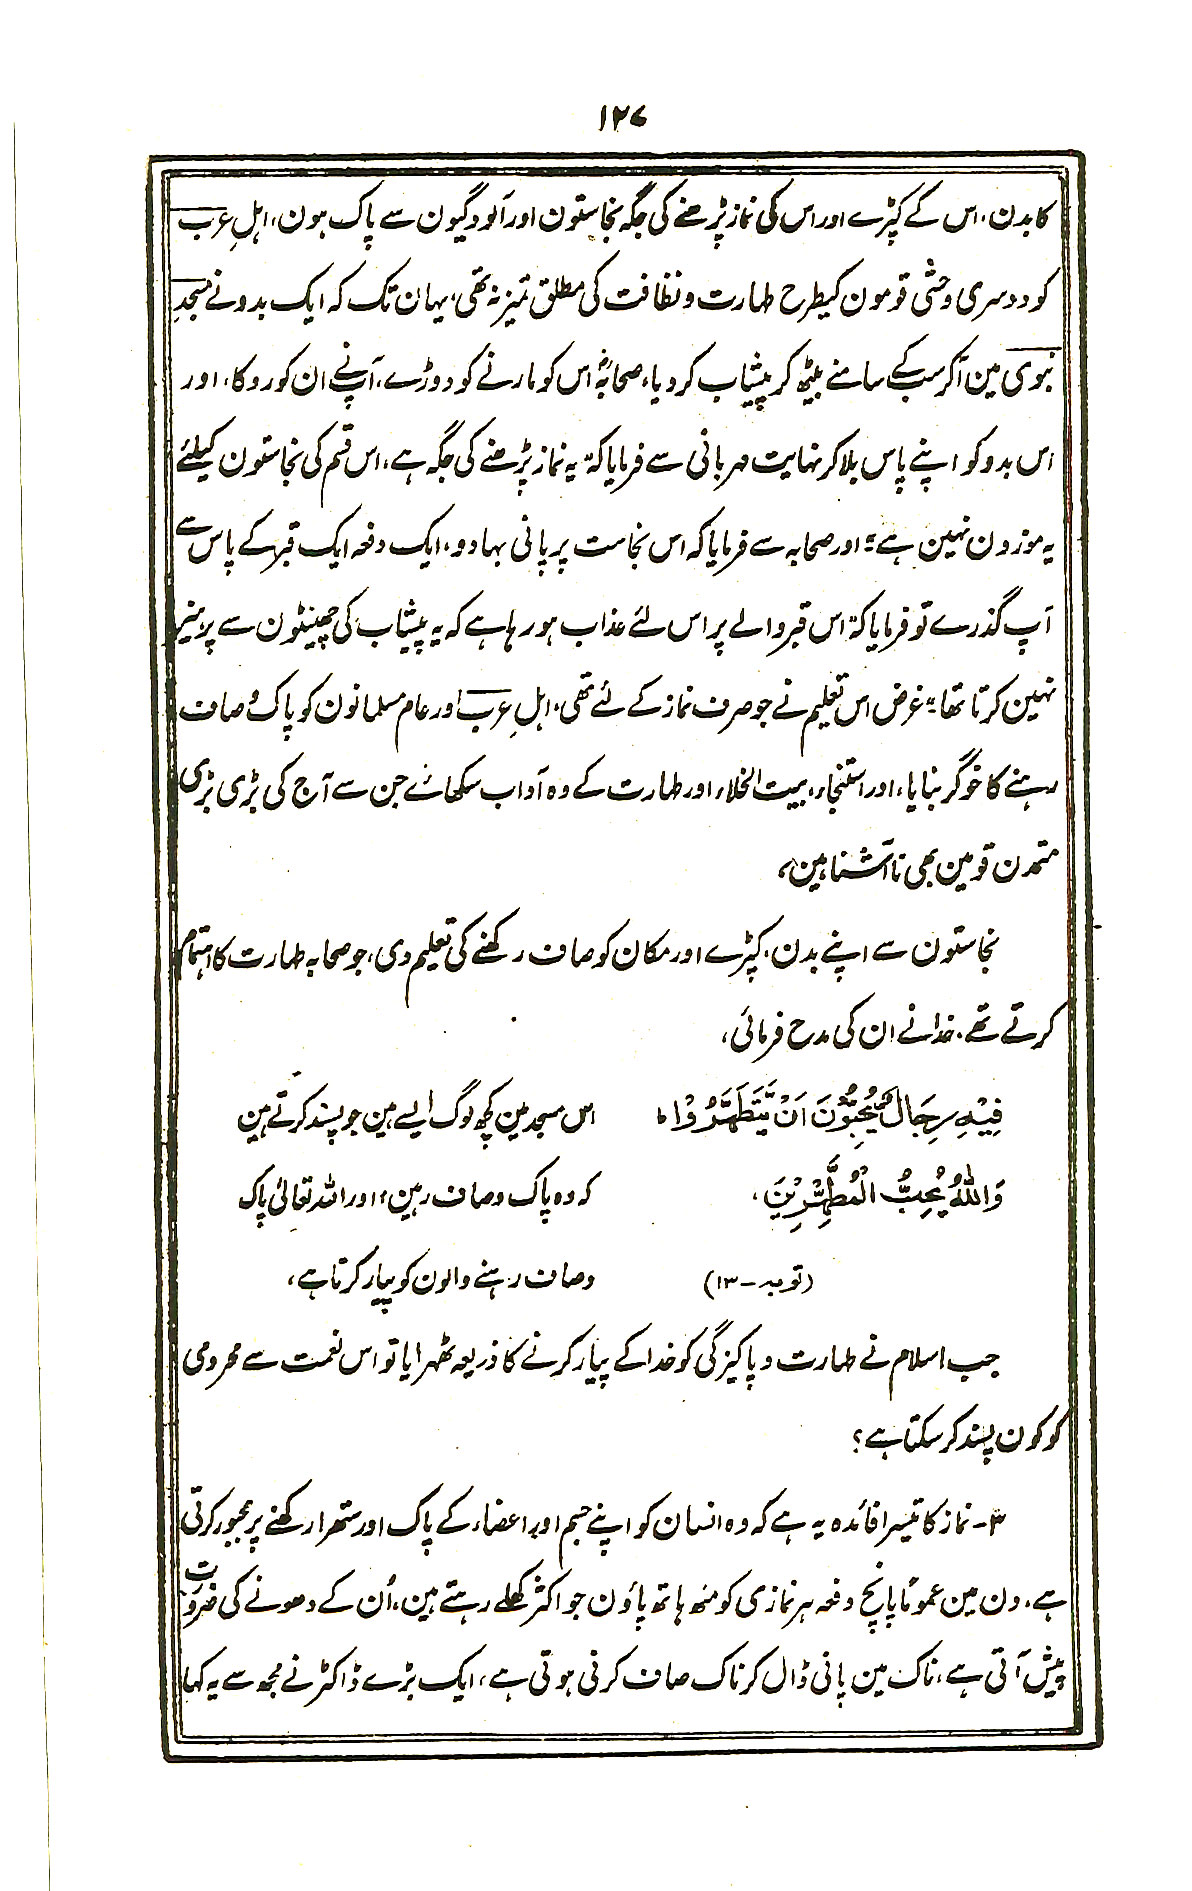 ۱۲۷
کا بدن، اس کے کپڑے اور اس کی نماز پڑھنے کی جگہ نجاستون اور آلودگیون سے پاک ہون، اہلِ عرب
کو دوسری وحشی قومون کیطرح طہارت و نظافت کی مطلق تمیز نہ تھی، یہان تک کہ ایک بدو نے مسجدِ
نبوی مین آکر سب کے سامنے بیٹھ کر پیشاب کر دیا، صحابہؓ اس کو مارنے کو دوڑے، آپ نے ان کو روکا، اور
اس بدو کو اپنے پاس بلا کر نہایت مہربانی سے فرمایا کہ "یہ نماز پڑھنے کی جگہ ہے، اس قسم کی نجاستون کیلئے
یہ موزون نہین ہے" اور صحابہ سے فرمایا کہ اس نجاست پر پانی بہا دو، ایک دفعہ ایک قبر کے پاس سے
آپ گذرے تو فرمایا کہ "اس قبر والے پر اس لئے عذاب ہو رہا ہے کہ یہ پیشاب کی چھینٹون سے پرہیز
نہین کرتا تھا" غرض اس تعلیم نے جو صرف نماز کے لئے تھی، اہلِ عرب اور عام مسلمانون کو پاک و صاف
رہنے کا خوگر بنایا، اور استنجاء، بیت الخلاء اور طہارت کے وہ آداب سکھائے جن سے آج کی بڑی بڑی
متمدن قومین بھی ناآشنا ہین،
نجاستون سے اپنے بدن، کپڑے اور مکان کو صاف رکھنے کی تعلیم دی، جو صحابہ طہارت کا اہتمام
کرتے تھے، خدا نے ان کی مدح فرمائی،
فِيْهِ رِجَالٌ يُّحِبُّوْنَ اَنْ يَّتَطَهَّرُوْا، اس مسجد مین کچھ لوگ ایسے ہین جو پسند کرتے ہین
وَاللّٰهُ يُحِبُّ الْمُطَّهِّرِيْنَ، کہ وہ پاک و صاف رہین، اور اللہ تعالیٰ پاک
(توبہ - ۱۳) و صاف رہنے والون کو پیار کرتا ہے،
جب اسلام نے طہارت و پاکیزگی کو خدا کے پیار کرنے کا ذریعہ ٹھہرایا تو اس نعمت سے محرومی
کو کون پسند کر سکتا ہے؟
۳- نماز کا تیسرا فائدہ یہ ہے کہ وہ انسان کو اپنے جسم اور اعضاء کے پاک اور ستھرا رکھنے پر مجبور کرتی
ہے، دن مین عموماً پانچ دفعہ ہر نمازی کو منھ ہاتھ پاؤن جو اکثر کھلے رہتے ہین، اُن کے دھونے کی ضرورت
پیش آتی ہے، ناک مین پانی ڈال کر ناک صاف کرنی ہوتی ہے، ایک بڑے ڈاکٹر نے مجھ سے یہ کہا